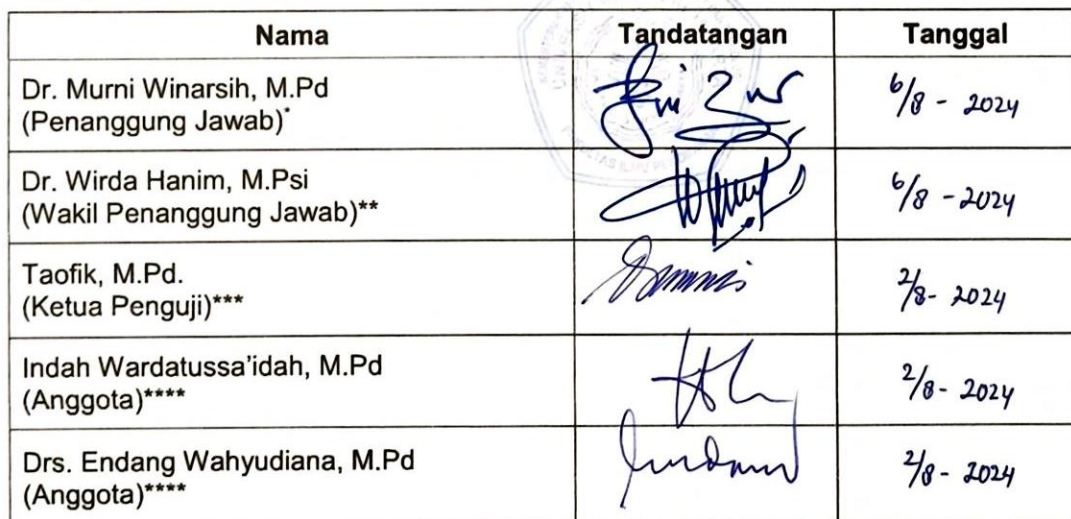 Nama Tandatangan Tanggal
Dr. Murni Winarsih, M.Pd
(Penanggung Jawab)* 6/8 - 2024
Dr. Wirda Hanim, M.Psi
(Wakil Penanggung Jawab)** 6/8 - 2024
Taofik, M.Pd.
(Ketua Penguji)*** 2/8 - 2024
Indah Wardatussa'idah, M.Pd
(Anggota)**** 2/8 - 2024
Drs. Endang Wahyudiana, M.Pd
(Anggota)**** 2/8 - 2024